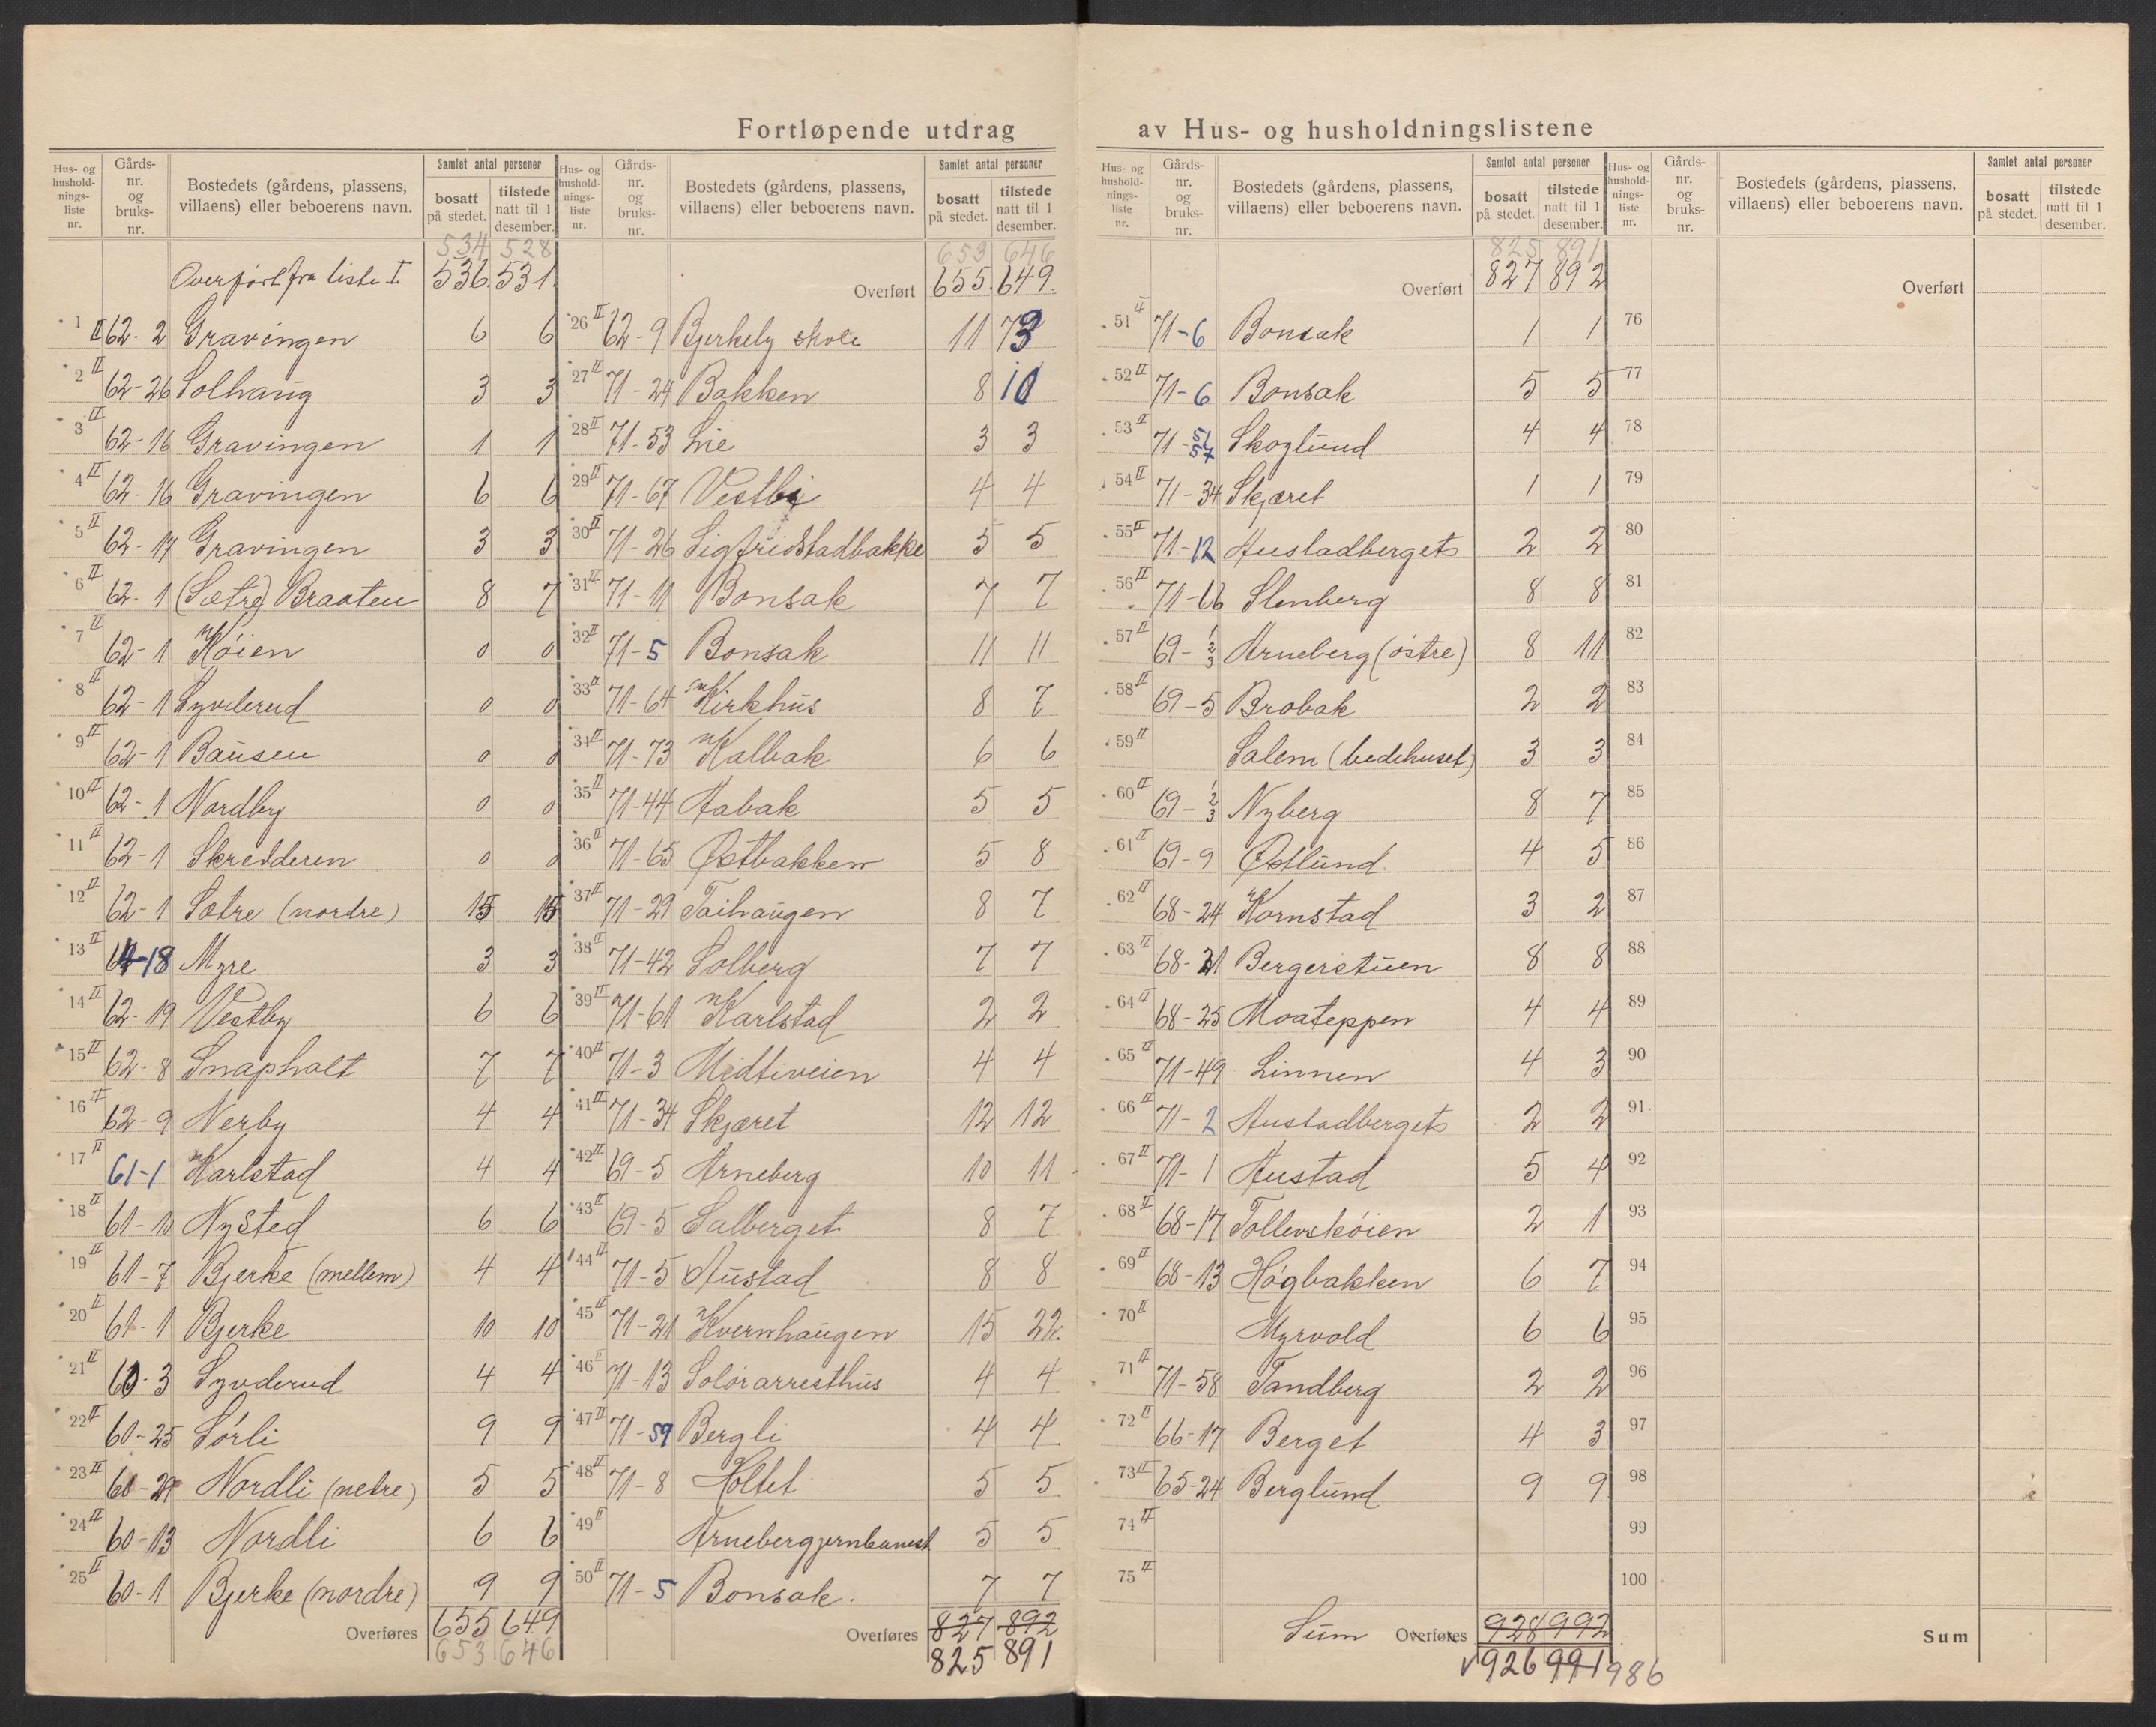 Fortløpende utdrag av Hus- og husholdningslistene
Hus- og hushold- nings- liste nr.
Gårds- nr. og bruks- nr.
Bostedets (gårdens, plassens, villaens) eller beboerens navn.
Samlet antal personer
bosatt på stedet.
tilstede natt til 1 desember.
534 528
Overført fra liste I 536. 531.
1 II 62-2 Gravingen 6 6
2 II 62-26 Solhaug 3 3
3 II 62-16 Gravingen 1 1
4 II 62-16 Gravingen 6 6
5 II 62-17 Gravingen 3 3
6 II 62-1 (Sætre) Braaten 8 7
7 II 62-1 Køien 0 0
8 II 62-1 Synderud 0 0
9 II 62-1 Bausen 0 0
10 II 62-1 Nordby 0 0
11 II 62-1 Skredderen 0 0
12 II 62-1 Sætre (nordre) 15 15
13 II -18 Myre 3 3
14 II 62-19 Vestby 6 6
15 II 62-8 Snapholt 7 7
16 II 62-9 Nerby 4 4
17 II 61-1 Karlstad 4 4
18 II 61-10 Nysted 6 6
19 II 61-7 Bjerke (mellem) 4 4
20 II 61-1 Bjerke 10 10
21 II 60-3 Synderud 4 4
22 II 60-25 Sørli 9 9
23 II 60- Nordli (nedre) 5 5
24 II 60-13 Nordli 6 6
25 II 60-1 Bjerke (nordre) 9 9
Overføres 655 649
653 646
Hus- og hushold- nings- liste nr.
Gårds- nr. og bruks- nr.
Bostedets (gårdens, plassens, villaens) eller beboerens navn.
Samlet antal personer
bosatt på stedet.
tilstede natt til 1 desember.
653 646
Overført 655. 649.
26 II 62-9 Bjerkely skole 11 73
27 II 71-24 Bakken 8 10
28 II 71-53 Lie 3 3
29 II 71-67 Vestby 4 4
30 II 71-26 Sigfridstadbakke 5 5
31 II 71-11 Bonsak 7 7
32 II 71-5 Bonsak 11 11
33 II 71-64 Kirkhus 8 7
34 II 71-73 Kalbak 6 6
35 II 71-44 Aabak 5 5
36 II 71-65 Østbakken 5 8
37 II 71-29 Taihaugen 8 7
38 II 71-42 Solberg 7 7
39 II 71-61 Karlstad 2 2
40 II 71-3 Midtiveien 4 4
41 II 71-34 Skjæret 12 12
42 II 69-5 Arneberg 10 11
43 II 69-5 Salberget 8 7
44 II 71-5 Austad 8 8
45 II 71-21 Kvernhaugen 15 22.
46 II 71-13 Solørarresthus 4 4
47 II 71-59 Bergli 4 4
48 II 71-8 Holtet 5 5
49 II Arnebergjernbanest 5 5
50 II 71-5 Bonsak. 7 7
Overføres 827 892
825 891
Hus- og hushold- nings- liste nr.
Gårds- nr. og bruks- nr.
Bostedets (gårdens, plassens, villaens) eller beboerens navn.
Samlet antal personer
bosatt på stedet.
tilstede natt til 1 desember.
825 891
Overført 827 892
51 II 71-6 Bonsak 1 1
52 II 71-6 Bonsak 5 5
53 II 71-51 57 Skoglund 4 4
54 II 71-34 Skjæret 1 1
55 II 71-12 Austadberget 2 2
56 II 71-66 Stenberg 8 8
57 II 69-1 2 3 Arneberg (østre) 8 11
58 II 69-5 Brobak 2 2
59 II Salem (bedehuset) 3 3
60 II 69-1 2 3 Nyberg 8 7
61 II 69-9 Østlund. 4 5
62 II 68-24 Kornstad 3 2
63 II 68-21 Bergerstuen 8 8
64 II 68-25 Moateppen 4 4
65 II 71-49 Linnen 4 3
66 II 71-2 Austadberget 2 2
67 II 71-1 Austad 5 4
68 II 68-17 Tollevskøien 2 1
69 II 68-13 Høgbakken 6 7
70 II Myrvold 6 6
71 II 71-58 Tandberg 2 2
72 II 66-17 Berget 4 3
73 II 65-24 Berglund 9 9
74 II
75 II
Sum Overføres 928 992
926 991 986
Hus- og hushold- nings- liste nr.
Gårds- nr. og bruks- nr.
Bostedets (gårdens, plassens, villaens) eller beboerens navn.
Samlet antal personer
bosatt på stedet.
tilstede natt til 1 desember.
Overført
76
77
78
79
80
81
82
83
84
85
86
87
88
89
90
91
92
93
94
95
96
97
98
99
100
Sum